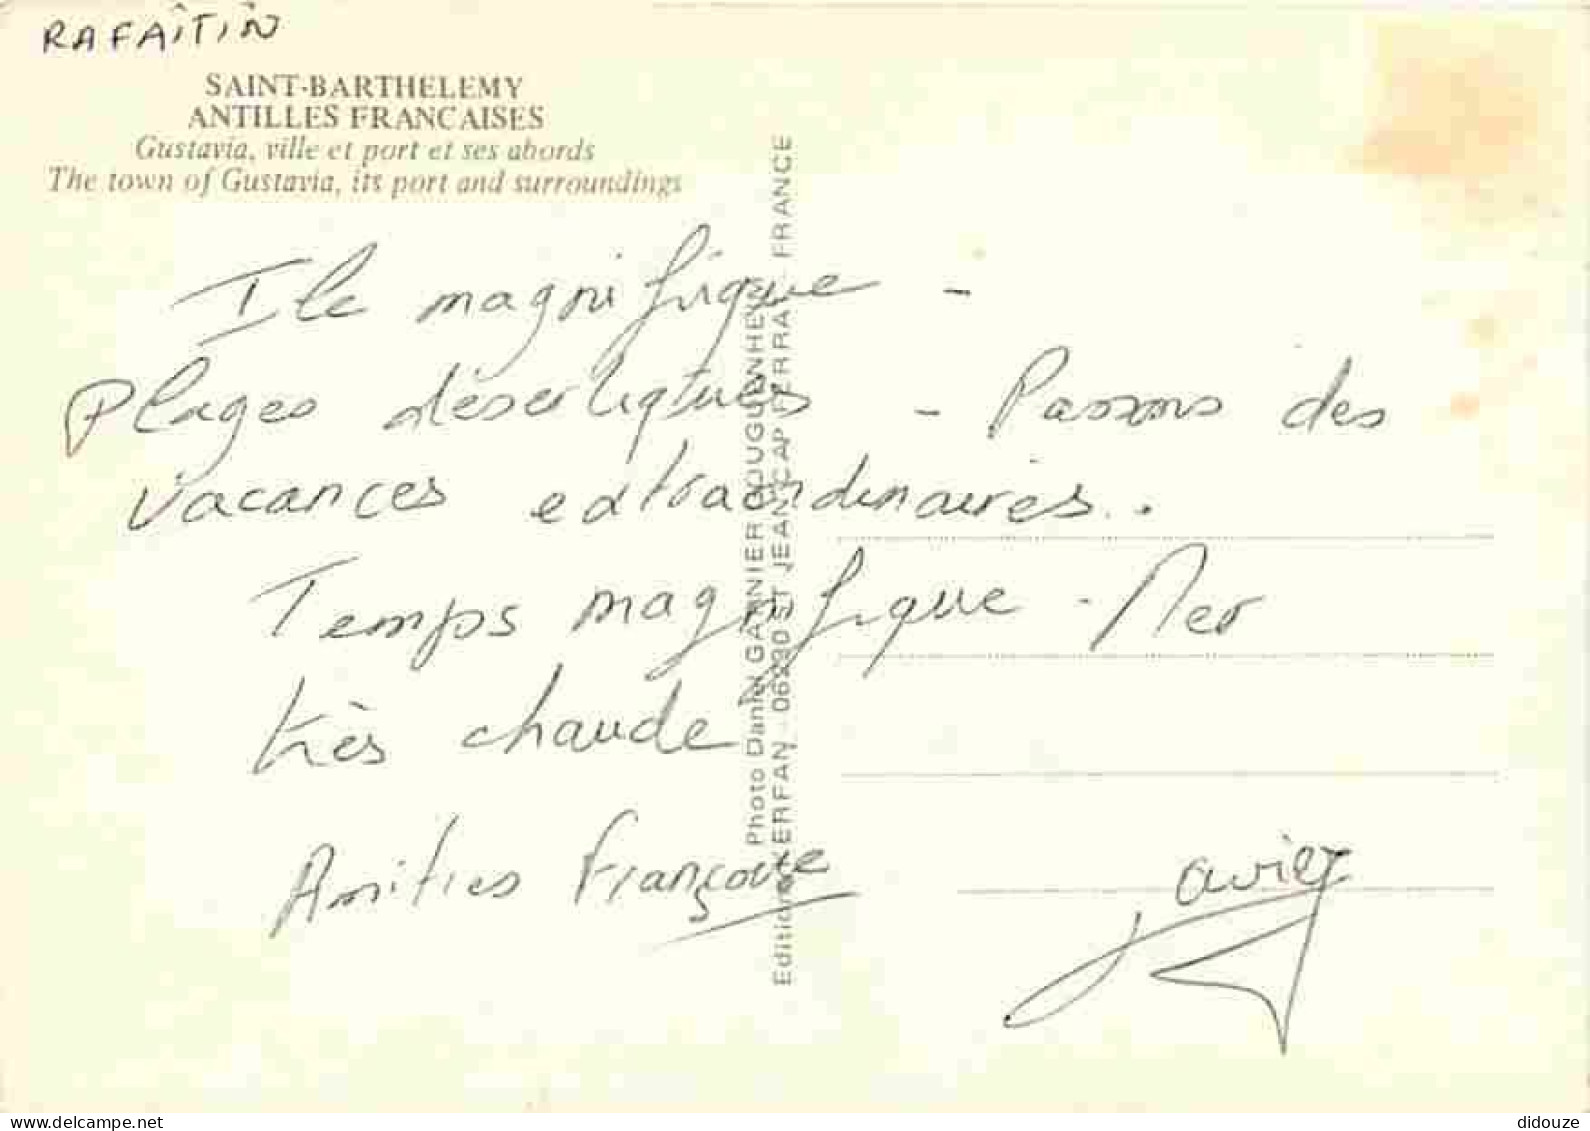 RAFAÎTIN
SAINT-BARTHELEMY
ANTILLES FRANCAISES
Gustavia, ville et port et ses abords
The town of Gustavia, its port and surroundings
Ile magnifique -
Plages désertiques - Passons des
vacances extraordinaires..
Temps magnifique - Mer
très chaude
Amitiés Françoise
Javier
Photo Daniel GARNIER GOUGUENHEYM
Editions KERFAN - 06230 ST JEAN CAP FERRAT - FRANCE
www.delcampe.net
didouze